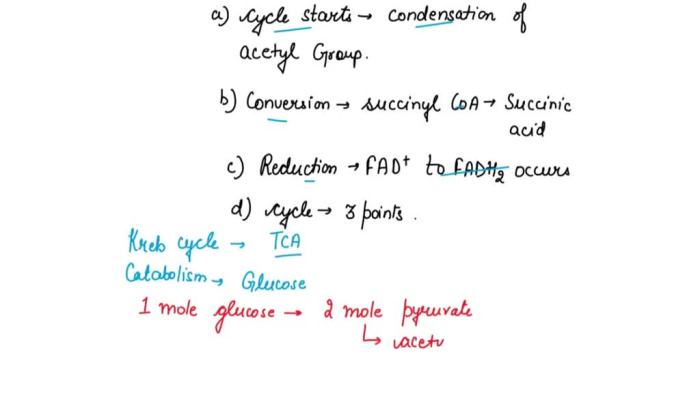 a) cycle starts → condensation of
acetyl Group.
b) Conversion → succinyl CoA → Succinic
acid
c) Reduction → FAD⁺ to FADH₂ occurs
d) cycle → 3 points.
Kreb cycle → TCA
Catabolism → Glucose
1 mole glucose → 2 mole pyruvate
↳ acetu